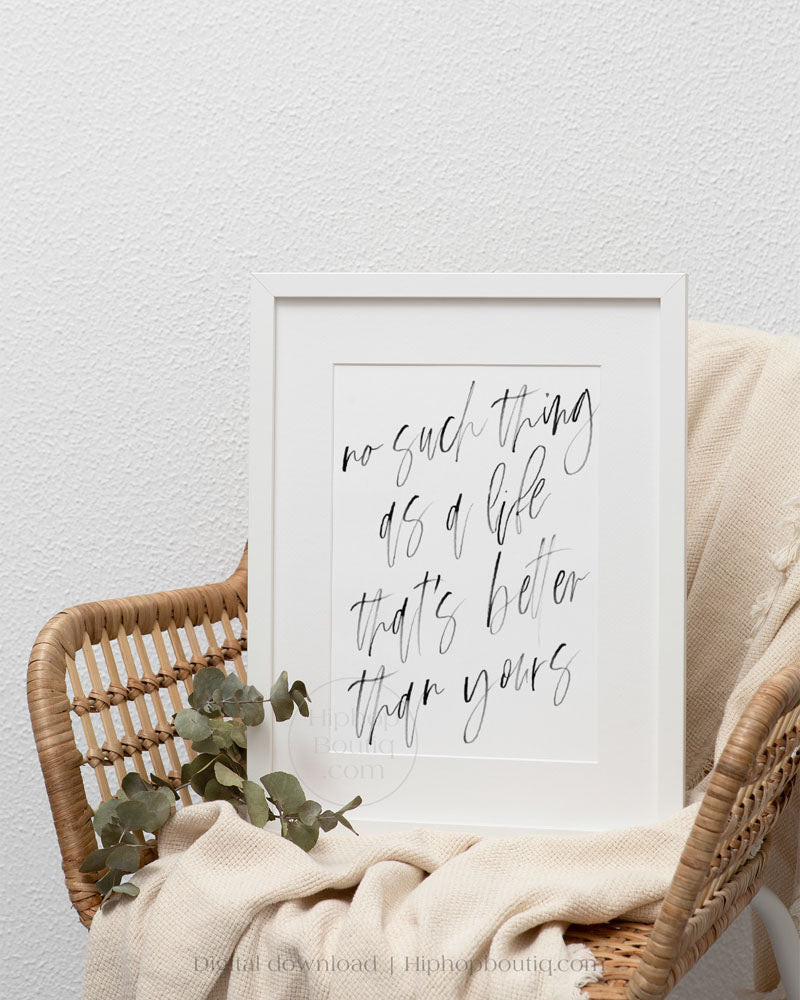 no such thing
as a life
that's better
than yours
Hiphop
Boutiq
.com
Digital download | Hiphopboutiq.com